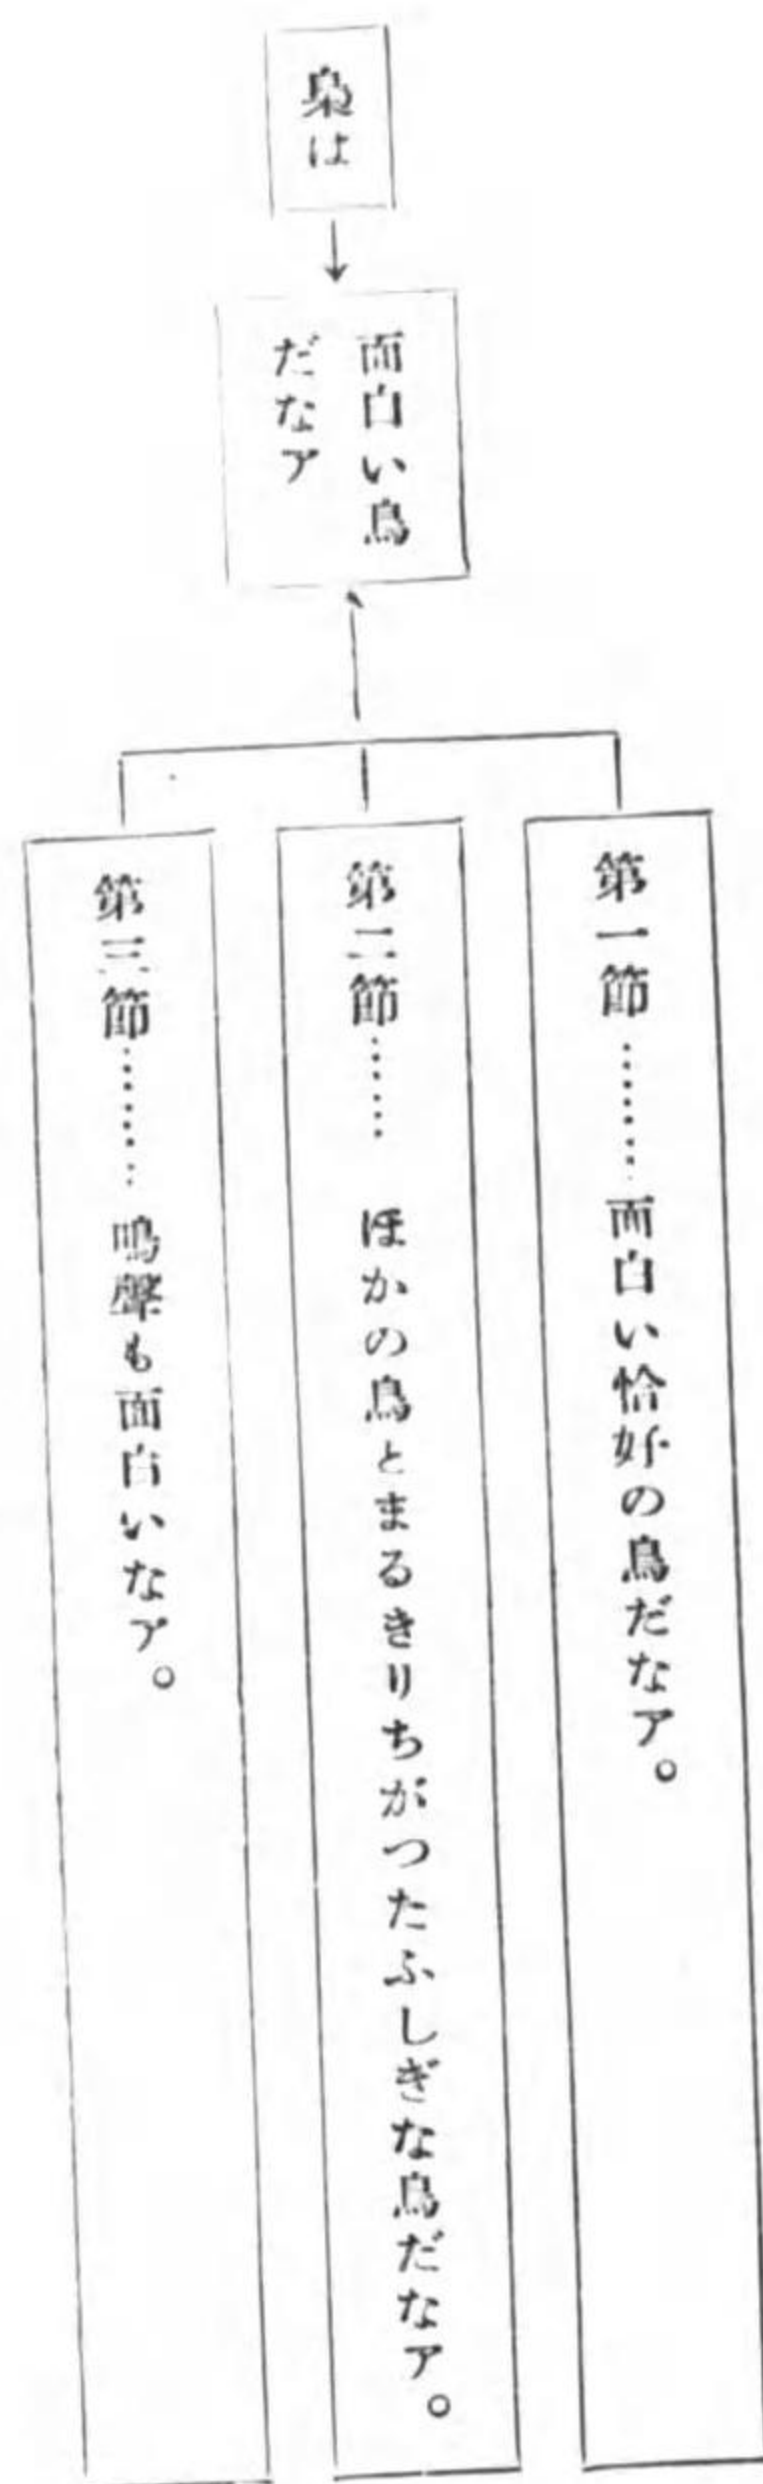 梟は
面白い鳥
だなア
第一節………面白い恰好の鳥だなア。
第二節……ほかの鳥とまるきりちがつたふしぎな鳥だなア。
第三節………鳴聲も面白いなア。